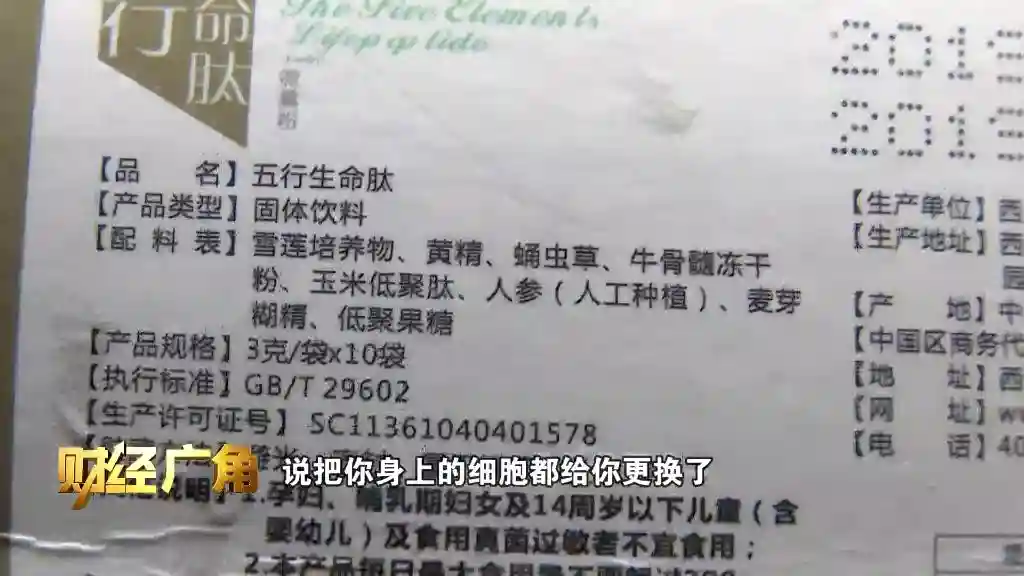 行 命肽
The Five Elements
Lifepeptide
2013
2013
【品 名】五行生命肽
【产品类型】固体饮料
【配 料 表】雪莲培养物、黄精、蛹虫草、牛骨髓冻干
粉、玉米低聚肽、人参（人工种植）、麦芽
糊精、低聚果糖
【产品规格】3克/袋x10袋
【执行标准】GB/T 29602
【生产许可证号】SC11361040401578
【生产单位】西
【生产地址】西
园
【产 地】中
【中国区商务代
【地 址】西
【网 址】ww
【电 话】40
财经广角
说把你身上的细胞都给你更换了
说明】1.孕妇、哺乳期妇女及14周岁以下儿童（含
婴幼儿）及食用真菌过敏者不宜食用；
2.本产品每日最大食用量不要超过